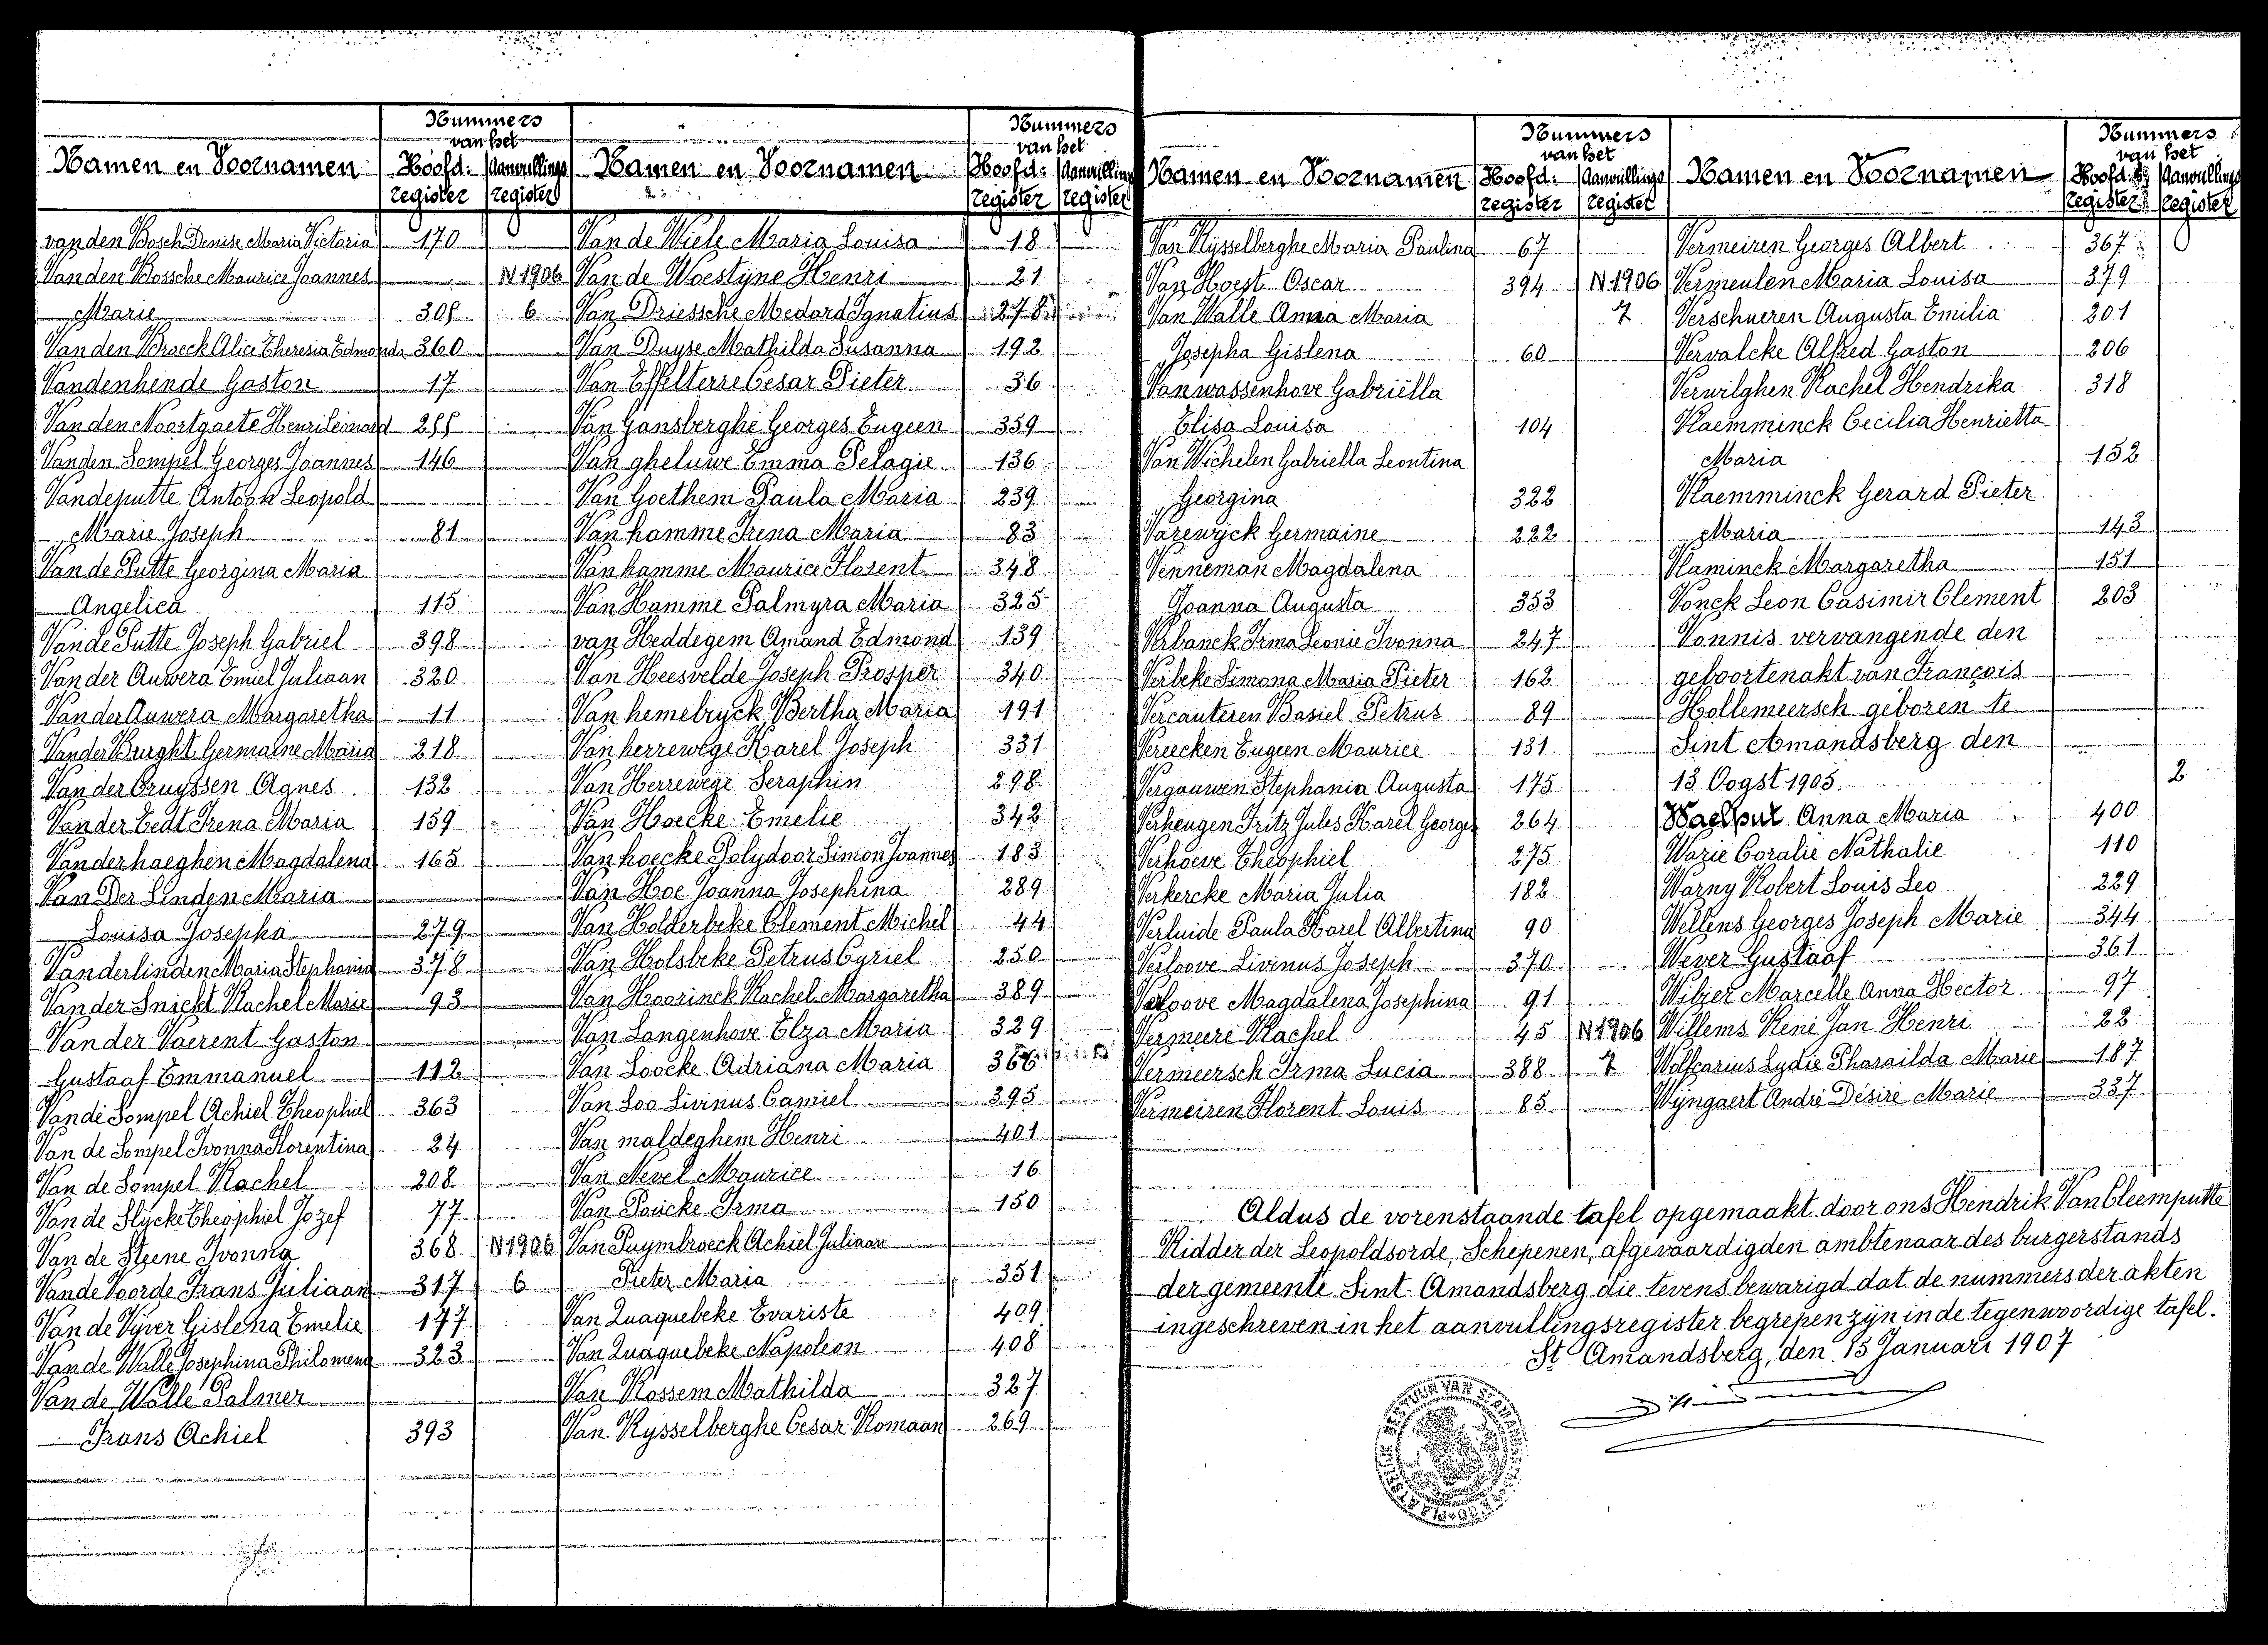 Nummers
van het
Namen en Voornamen Hoofd: Aanvullings
register register
van den Bosch Denise Maria Victoria 170
Van den Bossche Maurice Joannes N 1906
Marie 305 6
Van den Broeck Alice Theresia Edmonda 360
Vandenhende Gaston 17
Van den Noortgaete Henri Léonard 255
Vanden Sompel Georges Joannes 146
Vandeputte Antoon Leopold
Marie Joseph 81
Van de Putte Georgina Maria
Angelica 115
Van de Putte Joseph Gabriel 398
Van der Auwera Emiel Juliaan 320
Van der Auwera Margaretha 11
Van der Burght Germaine Maria 218
Van der Cruyssen Agnes 132
Van der Eedt Irena Maria 159
Vanderhaeghen Magdalena 165
Van Der Linden Maria
Louisa Josepha 279
Vanderlinden Maria Stephania 378
Van der Snickt Rachel Marie 93
Van der Vaerent Gaston
Gustaaf Emmanuel 112
Van de Sompel Achiel Theophiel 363
Van de Sompel Ivonna Florentina 24
Van de Sompel Rachel 208
Van de Slycke Theophiel Jozef 77
Van de Steene Ivonna 368 N 1906
Van de Voorde Frans Juliaan 317 6
Van de Vyver Gislena Emelie 177
Van de Walle Josephina Philomena 323
Van de Walle Palmer
Frans Achiel 393
Nummers
van het
Namen en Voornamen Hoofd: Aanvullings
register register
Van de Wiele Maria Louisa 18
Van de Woestyne Henri 21
Van Driessche Medard Ignatius 278
Van Duyse Mathilda Susanna 192
Van Effelterre Cesar Pieter 36
Van Gansberghe Georges Eugeen 359
Van gheluwe Emma Pelagie 136
Van Goethem Paula Maria 239
Van hamme Irena Maria 83
Van hamme Maurice Florent 348
Van Hamme Palmyra Maria 325
van Heddegem Amand Edmond 139
Van Heesvelde Joseph Prosper 340
Van hemelryck Bertha Maria 191
Van herrewege Karel Joseph 331
Van Herrewege Seraphin 298
Van Hoecke Emelie 342
Van hoecke Polydoor Simon Joannes 183
Van Hoe Joanna Josephina 289
Van Holderbeke Clement Michel 44
Van Holsbeke Petrus Cyriel 250
Van Hoorinck Rachel Margaretha 389
Van Langenhove Elza Maria 329
Van Loocke Adriana Maria 366
Van Loo Livinus Camiel 395
Van maldeghem Henri 401
Van Nevel Maurice 16
Van Poucke Irma 150
Van Puymbroeck Achiel Juliaan
Pieter Maria 351
Van Quaquebeke Evariste 409
Van Quaquebeke Napoleon 408
Van Rossem Mathilda 327
Van Rysselberghe Cesar Romaan 269
Nummers
van het
Namen en Voornamen Hoofd: Aanvullings
register register
Van Rysselberghe Maria Paulina 67
Van Hoest Oscar 394 N 1906
Van Walle Anna Maria 7
Josepha Gislena 60
Vanwassenhove Gabriëlla
Elisa Louisa 104
Van Wichelen Gabriella Leontina
Georgina 322
Vazewyck Germaine 222
Venneman Magdalena
Joanna Augusta 353
Verbanck Irma Leonie Ivonna 247
Verbeke Simona Maria Pieter 162
Vercauteren Basiel Petrus 89
Vereecken Eugeen Maurice 131
Vergauwen Stephania Augusta 175
Verheugen Fritz Jules Karel Georges 264
Verhoeve Theophiel 275
Verkercke Maria Julia 182
Verluide Paula Karel Albertina 90
Verloove Livinus Joseph 370
Verloove Magdalena Josephina 91
Vermeere Rachel 45 N 1906
Vermeersch Irma Lucia 388 7
Vermeiren Florent Louis 85
Nummers
van het
Namen en Voornamen Hoofd: Aanvullings
register register
Vermeiren Georges Albert 367
Vermeulen Maria Louisa 379
Verschueren Augusta Emilia 201
Vervalcke Alfred Gaston 206
Verwilghen Rachel Hendrika 318
Vlaemminck Cecilia Henrietta
Maria 152
Vlaemminck Gerard Pieter
Maria 143
Vlaminck Margaretha 151
Vonck Leon Casimir Clement 203
Vonnis vervangende den
geboortenakt van François
Hollemeersch geboren te
Sint Amandsberg den
13 Oogst 1905. 2
Waelput Anna Maria 400
Wazie Coralie Nathalie 110
Warny Robert Louis Leo 229
Wellens Georges Joseph Marie 344
Wever Gustaaf 361
Wilzer Marcelle Anna Hector 97
Willems René Jan Henri 22
Wolfcarius Lydie Pharaïlda Marie 187
Wyngaert André Désiré Marie 337
Aldus de vorenstaande tafel opgemaakt door ons Hendrik Van Cleemputte
Ridder der Leopoldsorde, Schepenen, afgevaardigden ambtenaar des burgerstands
der gemeente Sint-Amandsberg die tevens bewarigd dat de nummers der akten
ingeschreven in het aanvullingsregister begrepen zyn in de tegenwoordige tafel.
St Amandsberg, den 15 Januari 1907